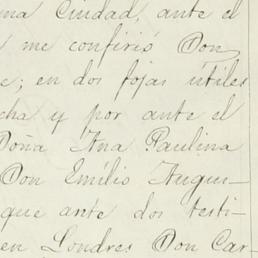 ma Ciudad, ante el
me confirió Don
e; en dos fojas útiles
cha y por ante el
Doña Ana Paulina
Don Emilio Augus-
que ante dos testi-
en Londres Don Car-